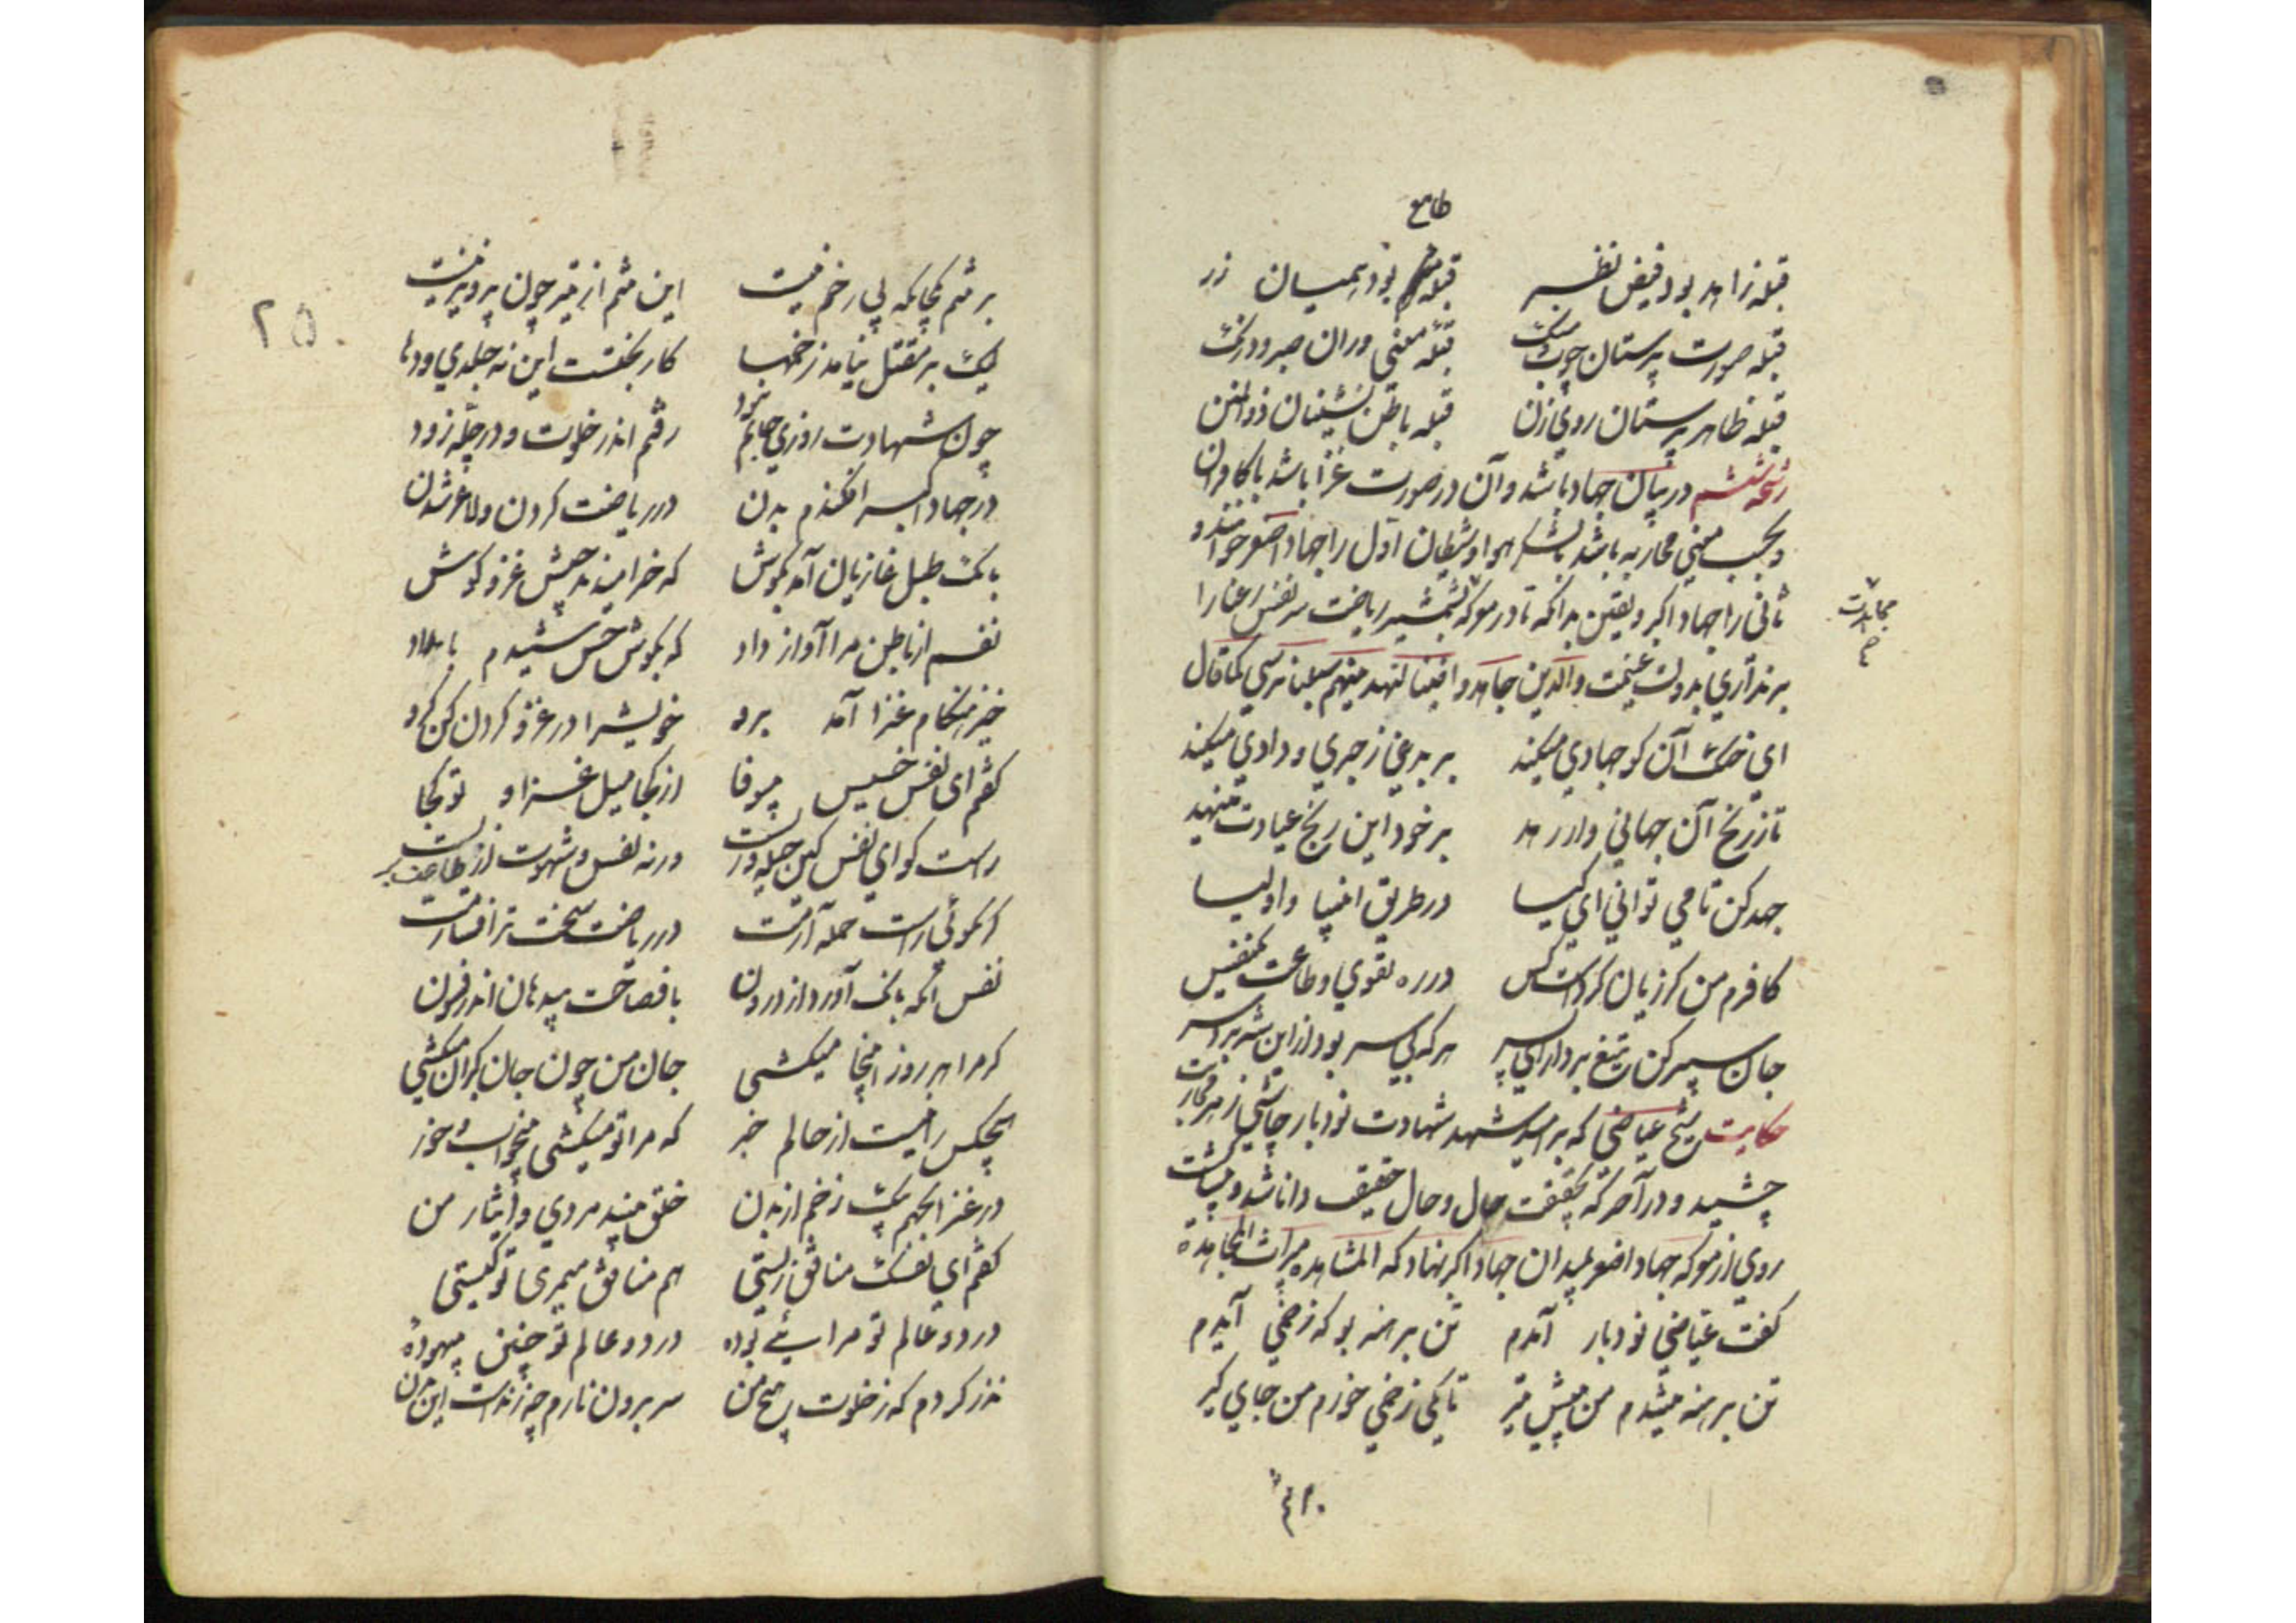 طامع
قبله زاهد بود فیض نظر قبله بود همیان زر
قبله صورت پرستان چوب سنک قبله معنی وران صبر و درنک
قبله ظاهر پرستان روی زن قبله باطن نشینان ذوالمنن
رشحه ششم در بیان جهاد باشد و آن در صورت غزا باشد با کافران
و بحسب معنی محاربه باشد بلشکر هوا و شیطان اول را جهاد اصغر خوانند و
ثانی را جهاد اکبر و یقین بدانکه تا در معرکه بشمشیر ریاضت سر نفس رعنا را
مجاهدت
برنداری بدولت غنیمت والذین جاهدوا فینا لنهدینهم سبلنا نرسی کما قال
ای خنک آن کو جهادی میکند بر بدن زجری و دادی میکند
تا ز رنج آن جهانی وا رهد بر خود این رنج عبادت مینهد
جهد کن تا می توانی ای کیا در طریق انبیا و اولیا
کافرم من کر زیان کردست کس در ره تقوی و طاعت یکنفس
جان سپر کن تیغ بردار ای پسر هر که بی سر بود ازین شه برد سر
حکایت شیخ عیاضی که بر امید شهد شهادت نود بار چاشنی زهر
چشید و در آخر که بحقیقت حال و حال حقیقت دانا شد و
روی از معرکه جهاد اصغر بمیدان جهاد اکبر نهاد که المشاهده میراث المجاهدة
کفت عیاضی نود بار آمدم تن برهنه بو که زخمی آیدم
تن برهنه میشدم من پیش تیر تا یکی زخمی خورم من جای کیر
۲۵
بر تنم یکجایکه بی زخم نیست این تنم از تیر چون پرویزنیست
لیک بر مقتل نیامد زخمها کار بختست این نه جلدی و دها
چون شهادت روزی جانم نبود رفتم اندر خلوت و در چله زود
در جهاد اکبر افکندم بدن در ریاضت کردن و لاغر شدن
بانک طبل غازیان آمد بکوش که خرامیدند جیش غزو کوش
نفسم از باطن مرا آواز داد که بکوش حس شنیدم بامداد
خیز هنکام غزا آمد برو خویش را در غزو کردن کن کرو
کفتم ای نفس خبیث بیوفا از کجا میل غزا و تو کجا
راست کو ای نفس کین حیله وریست ورنه نفس و شهوت از طاعت بریست
کر نکوئی راست حمله آرمت در ریاضت سخت تر افشارمت
نفس آنکه بانک آورد از درون با فصاحت بیدهان اندر فسون
که مرا هر روز اینجا میکشی جان من چون جان کبران میکشی
هیچکس را نیست از حالم خبر که مرا تو میکشی بیخواب و خور
در غزا بجهم بیک زخم از بدن خلق بیند مردی و ایثار من
کفتم ای نفسک منافق زیستی هم منافق میمیری تو کیستی
در دو عالم تو مرائی بوده در دو عالم تو چنین بیهوده
نذر کردم که ز خلوت هیچ من سر برون نارم چو زندست این بدن